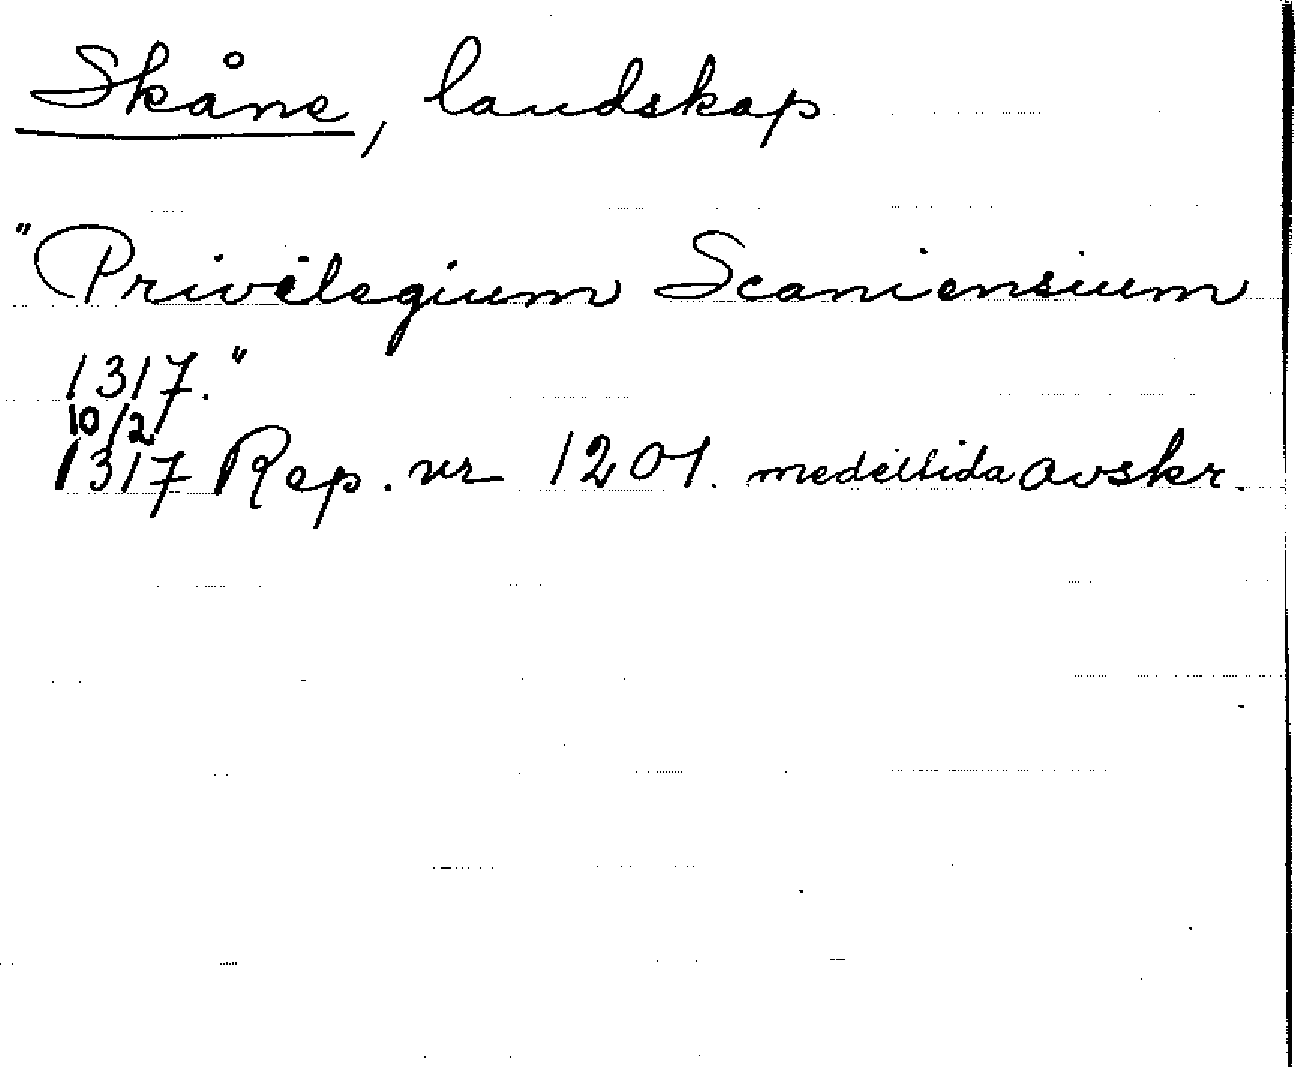 Skåne, landskap
"Privilegium Scaniensium
1317."
10/2
1317 Rep. nr 1201. medeltida avskr.